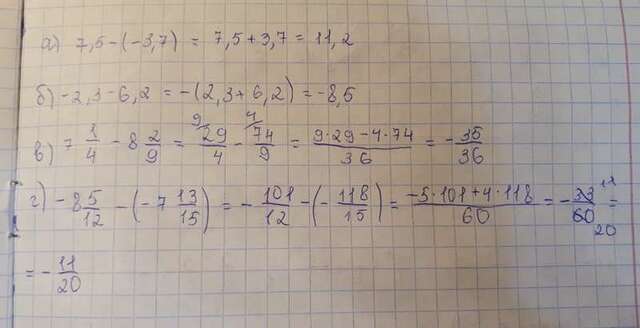 а) 7,5-(-3,7) = 7,5+3,7 = 11,2
б) -2,3-6,2 = -(2,3+6,2) = -8,5
в) 7 1/4 - 8 2/9 = 9/ 29/4 - 4/ 74/9 = (9·29-4·74)/36 = -35/36
г) -8 5/12 - (-7 13/15) = -101/12 - (-118/15) = (-5·101+4·118)/60 = -33/60 11 20 =
= -11/20